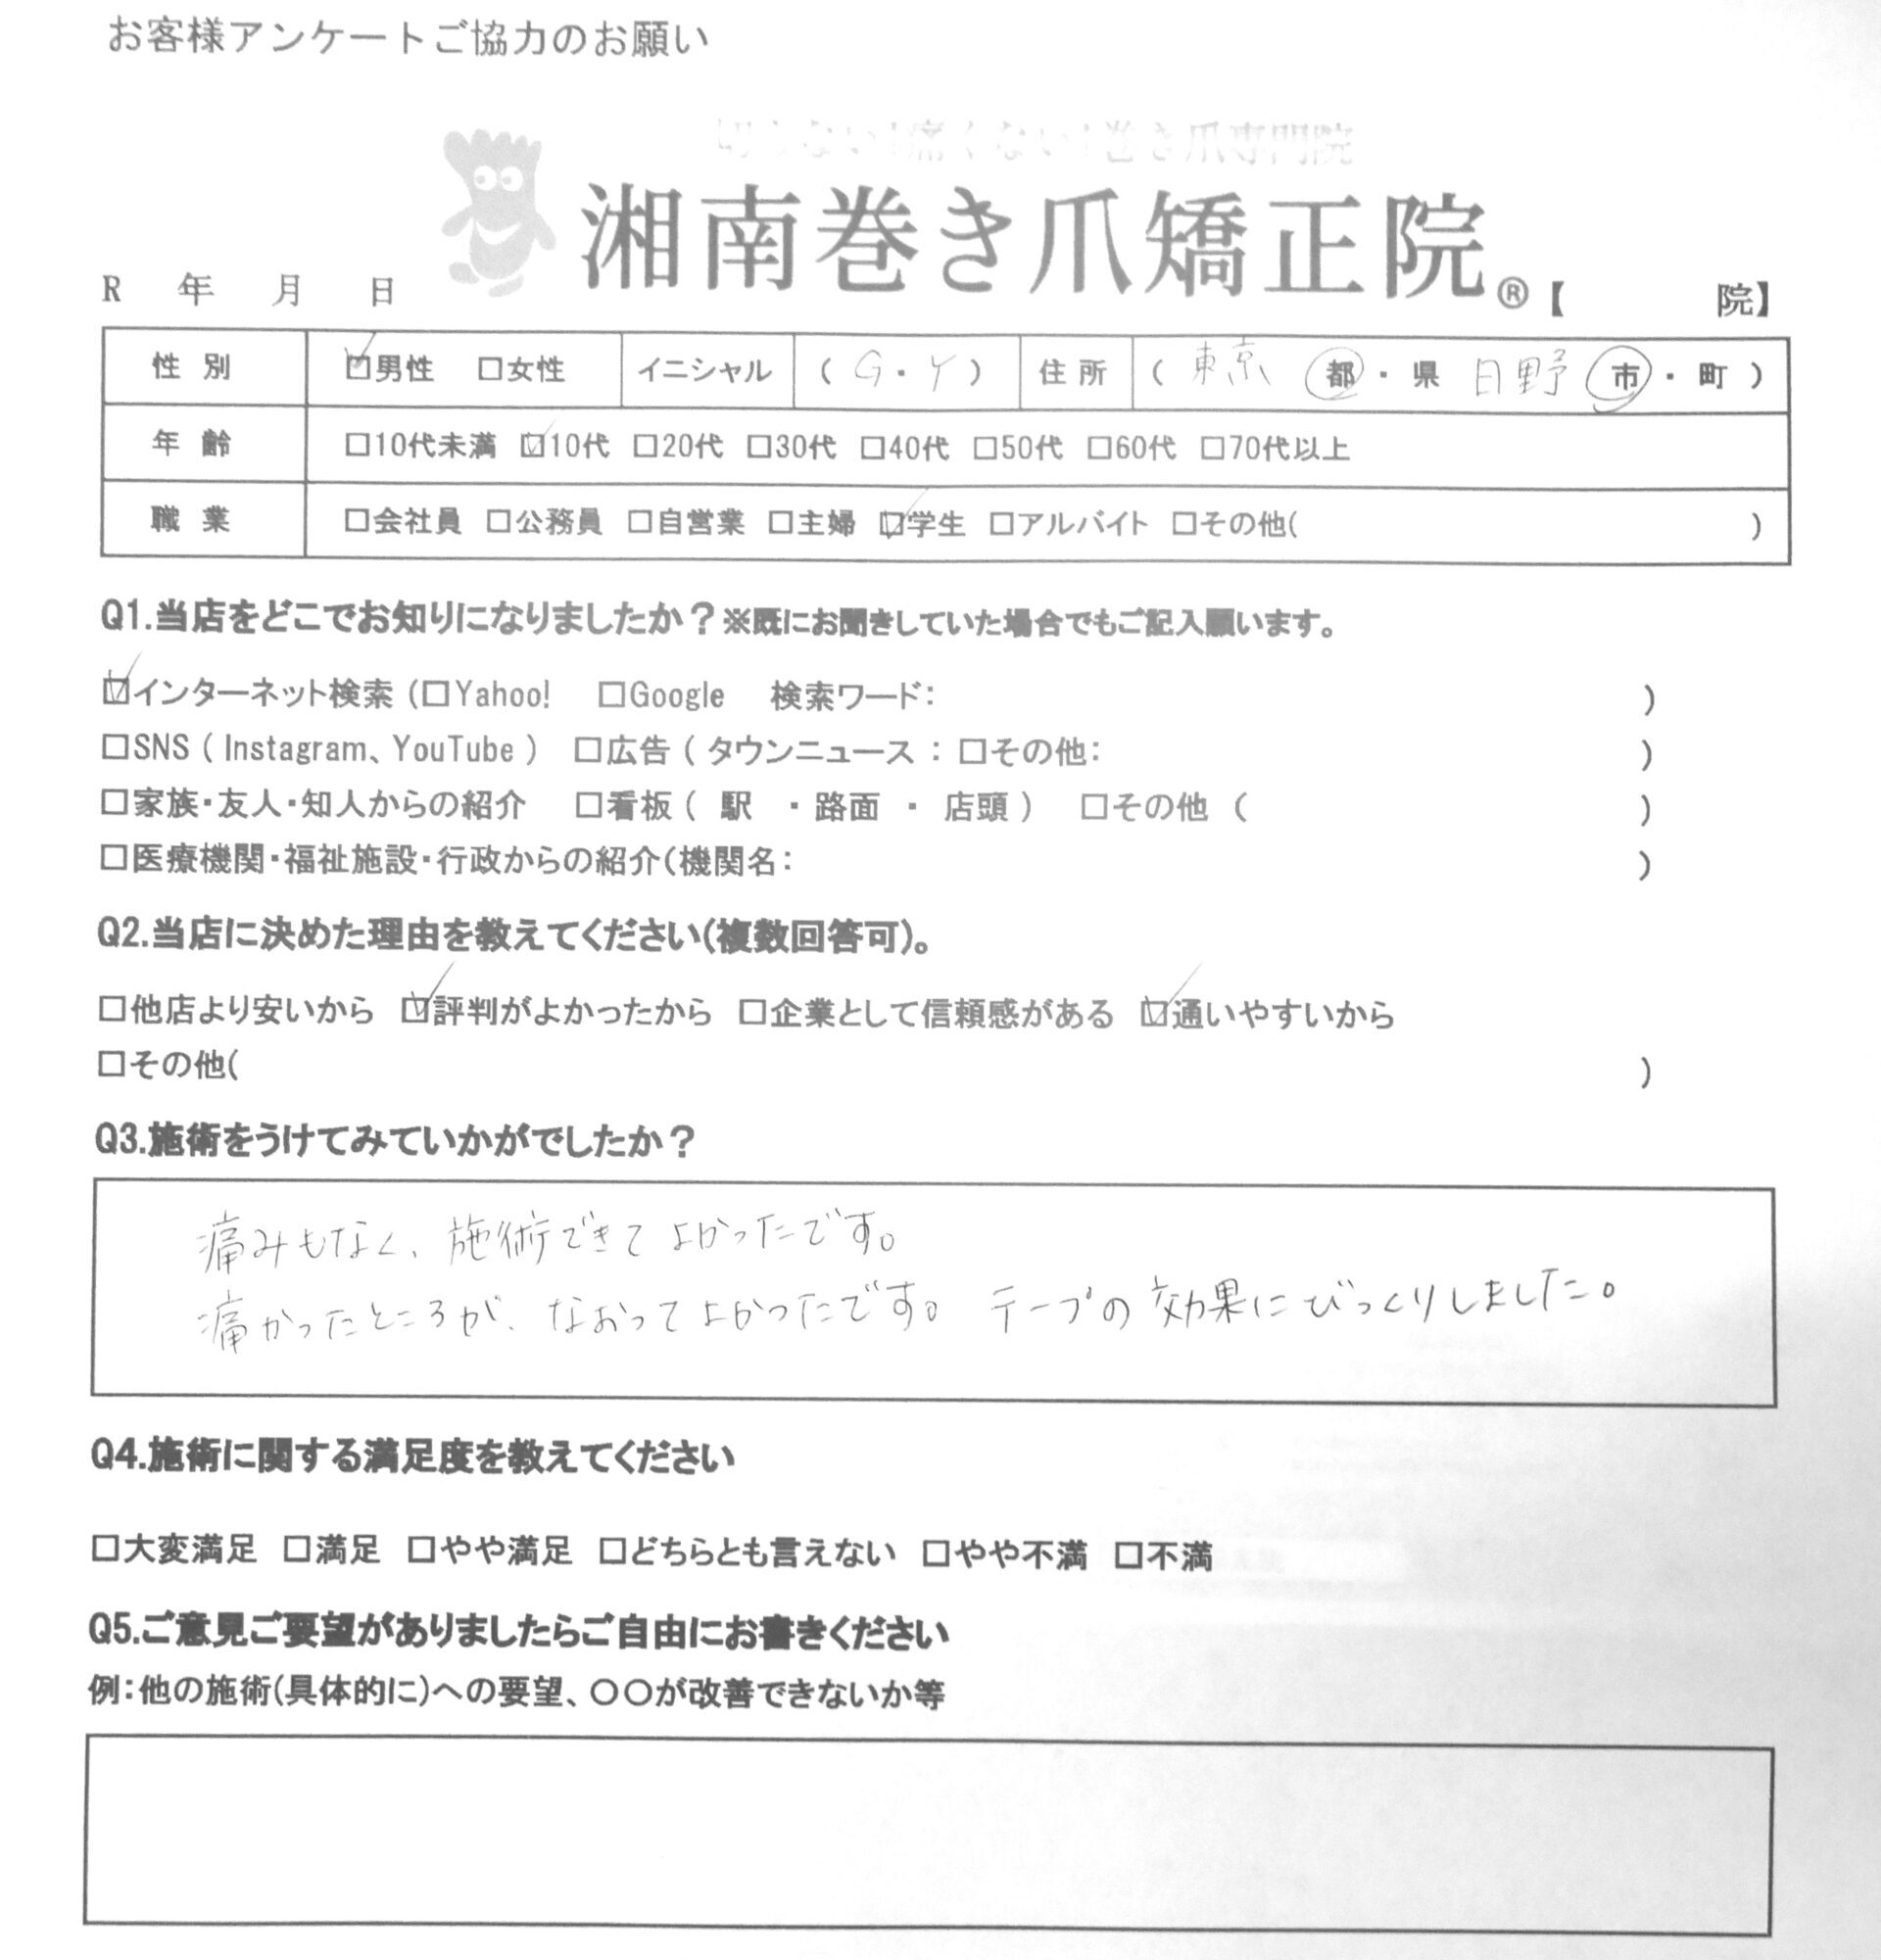 お客様アンケートご協力のお願い
切らない!痛くない!巻き爪専門院
湘南巻き爪矯正院®【 院】
R 年 月 日
性 別 ☑男性 □女性 イニシャル ( G・Y ) 住 所 ( 東京 都・県 日野 市・町 )
年 齢 □10代未満 ☑10代 □20代 □30代 □40代 □50代 □60代 □70代以上
職 業 □会社員 □公務員 □自営業 □主婦 ☑学生 □アルバイト □その他( )
Q1.当店をどこでお知りになりましたか？※既にお聞きしていた場合でもご記入願います。
☑インターネット検索 (□Yahoo! □Google 検索ワード: )
□SNS ( Instagram、YouTube ) □広告 ( タウンニュース : □その他: )
□家族・友人・知人からの紹介 □看板 ( 駅 ・ 路面 ・ 店頭 ) □その他 ( )
□医療機関・福祉施設・行政からの紹介(機関名: )
Q2.当店に決めた理由を教えてください(複数回答可)。
□他店より安いから ☑評判がよかったから □企業として信頼感がある ☑通いやすいから
□その他( )
Q3.施術をうけてみていかがでしたか？
痛みもなく、施術できてよかったです。
痛かったところが、なおってよかったです。テープの効果にびっくりしました。
Q4.施術に関する満足度を教えてください
□大変満足 □満足 □やや満足 □どちらとも言えない □やや不満 □不満
Q5.ご意見ご要望がありましたらご自由にお書きください
例:他の施術(具体的に)への要望、〇〇が改善できないか等